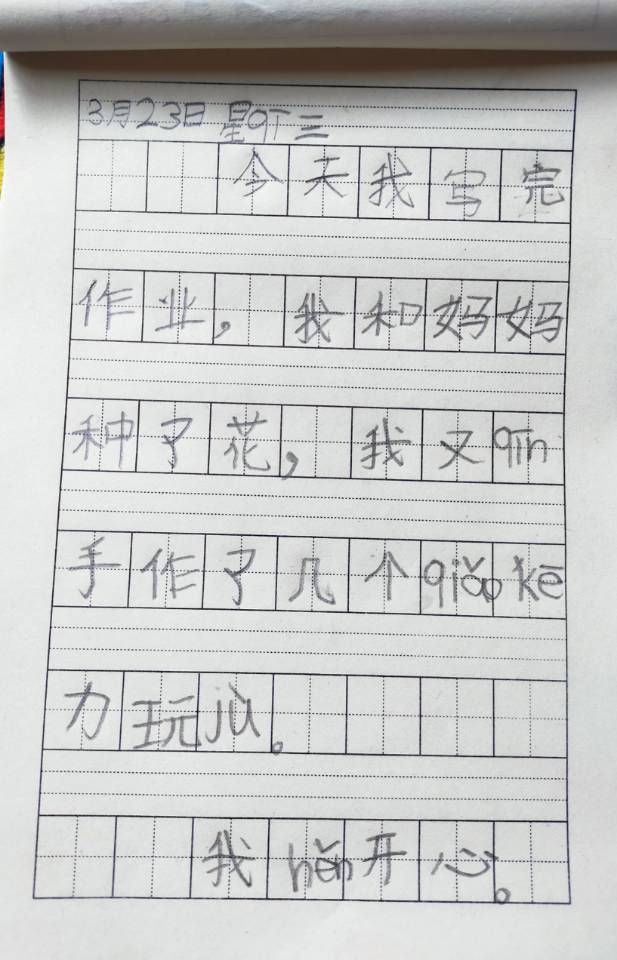 3月23日 星qī三
今天我写完
作业，我和妈妈
种了花，我又qīn
手作了几个qiǎo kē
力玩jù。
我hěn开心。